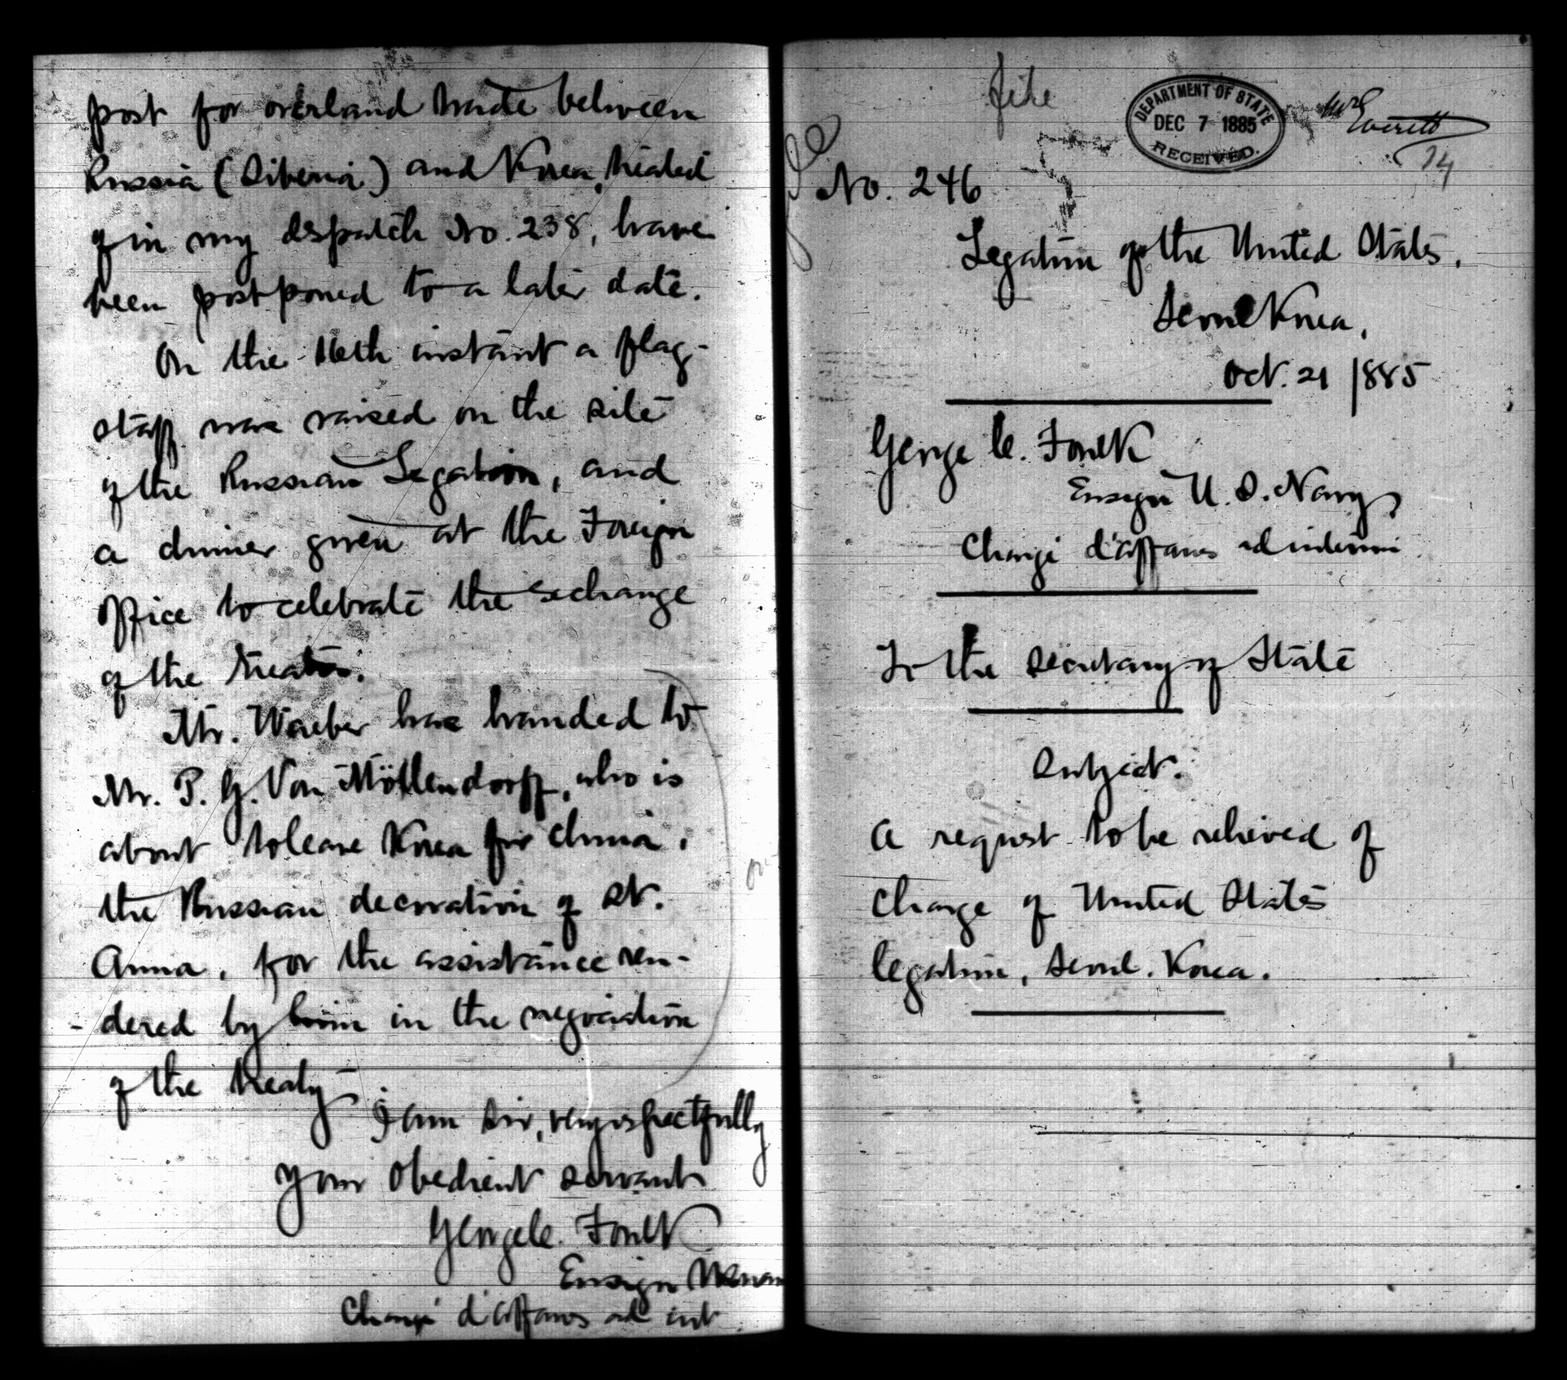 post for overland trade between
Russia (Siberia) and Korea, treated
of in my despatch No. 238, have
been postponed to a later date.
On the 16th instant a flag-
staff was raised on the site
of the Russian Legation, and
a dinner given at the Foreign
Office to celebrate the exchange
of the treaties.
Mr. Waeber has handed to
Mr. P. G. Von Möllendorff, who is
about to leave Korea for China,
the Russian decoration of St.
Anna, for the assistance ren-
dered by him in the negociation
of the treaty.
I am Sir, very respectfully
your obedient servant
George C. Foulk
Ensign
Chargé d'affaires ad int
file
DEPARTMENT OF STATE
DEC 7 1885
RECEIVED.
Mr Everett
14
No. 246
Legation of the United States,
Seoul Korea,
Oct. 21 1885
George C. Foulk
Ensign U. S. Navy
Chargé d'affaires ad interim
To the Secretary of State
Subject.
A request to be relieved of
charge of United States
legation, Seoul. Korea.